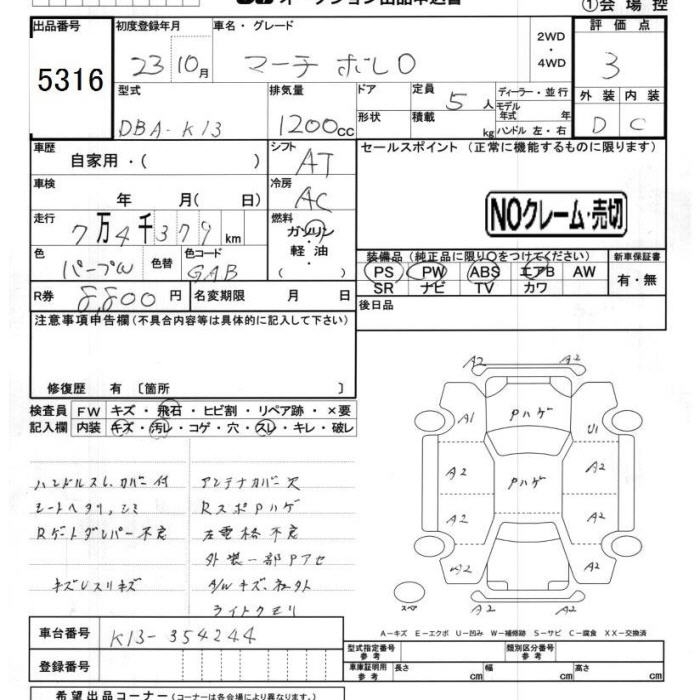 オークション出品申込書
①会場控
出品番号 初度登録年月 車名・グレード 2WD ・ 4WD 評価点
5316 23 10月 マーチ ボレロ 3
型式 排気量 ドア 定員 5人 ディーラー・並行 外装 内装
DBA-K13 1200cc 形状 積載 kg モデル年式 年 D C
ハンドル 左・右
車歴 シフト セールスポイント (正常に機能するものに限ります)
自家用・( ) AT
車検 冷房
年 月( 日) AC NOクレーム・売切
走行 燃料
7万4千379km ガソリン
軽油
・( )
色 色替 色コード 装備品(純正品に限り○をつけてください) 新車保証書
パープル GAB PS PW ABS エアB AW 有・無
SR ナビ TV カワ
R券 8,800円 名変期限 月 日 後日品
注意事項申告欄(不具合内容等は具体的に記入して下さい)
修復歴 有 〔箇所 〕
検査員記入欄 FW キズ・飛石・ヒビ割・リペア跡・×要
内装 キズ・汚レ・コゲ・穴・スレ・キレ・破レ
ハンドルスレ、カバー付 アンテナカバー欠
シートヘタリ、シミ RスポPハゲ
Rゲートダンパー不良 左電格不良
外装一部Pアセ
キズUスリキズ A/Wキズ、
ライトクモリ
A2 A2
A1 Pハゲ U1
A2 Pハゲ A2
A2 A2
W2 A2
A2 A2
スペア
A-キズ E-エクボ U-凹み W-補修跡 S-サビ C-腐食 XX-交換済
車台番号 K13-354244
登録番号
型式指定番号 参考 類別区分番号 参考
車庫証明用 参考 長さ cm 幅 cm 高さ cm
希望出品コーナー(コーナーは各会場により異なります)